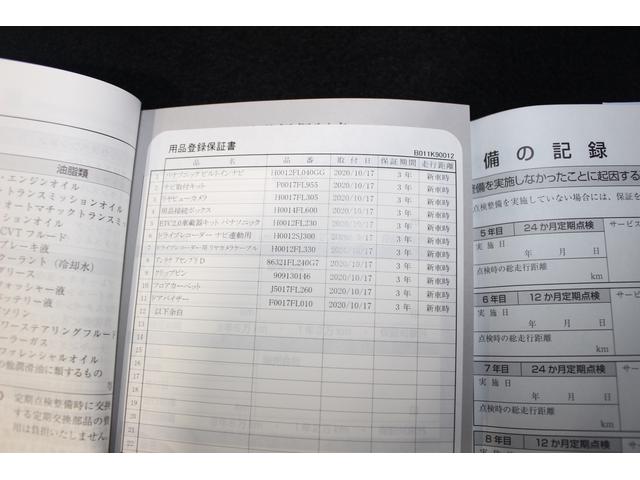 油脂類
・エンジンオイル
トランスミッションオイル
オートマチックトランスミッ
ションオイル
CVTフルード
ブレーキ液
クーラント(冷却水)
グリース
ウォッシャー液
バッテリー液
ガソリン
パワーステアリングフルード
クーラーガス
デファレンシャルオイル
の他潤滑油に類するもの
等
定期点検整備時に交換
する定期交換部品の費
用は負担いたしません。
用品登録保証書
B011K90012
品 名 品 番 取付日 保証期間 走行距離
1 パナソニック ビルトイン ナビ H0012FL040GG 2020/10/17 3年 新車時
2 ナビ取付キット F0017FL955 2020/10/17 3年 新車時
3 リヤビューカメラ H0017FL305 2020/10/17 3年 新車時
4 用品接続ボックス H0014FL600 2020/10/17 3年 新車時
5 ETC2.0車載器キット パナソニック H0012FL230 2020/10/17 3年 新車時
6 ドライブレコーダー ナビ連動用 H0012SJ300 2020/10/17 3年 新車時
7 ドライブレコーダー用リヤカメラケーブル H0012FL330 2020/10/17 3年 新車時
8 アンテナ アセンブリD 86321FL240G7 2020/10/17 3年 新車時
9 クリップピン 909130146 2020/10/17 3年 新車時
10 フロアカーペット J5017FL260 2020/10/17 3年 新車時
11 ドアバイザー F0017FL010 2020/10/17 3年 新車時
12 以下余白
13
14
15
16
17
18
19
20
21
22
備の記録
整備を実施しなかったことに起因する
点検整備を実施していない場合には、保証を
5年目 24か月定期点検 サービス
実施日
年 月 日
点検時の総走行距離
km
6年目 12か月定期点検 サー
実施日
年 月 日
点検時の総走行距離
km
7年目 24か月定期点検 サー
実施日
年 月 日
点検時の総走行距離
km
8年目 12か月定期点検 サ
実施日
年 月 日